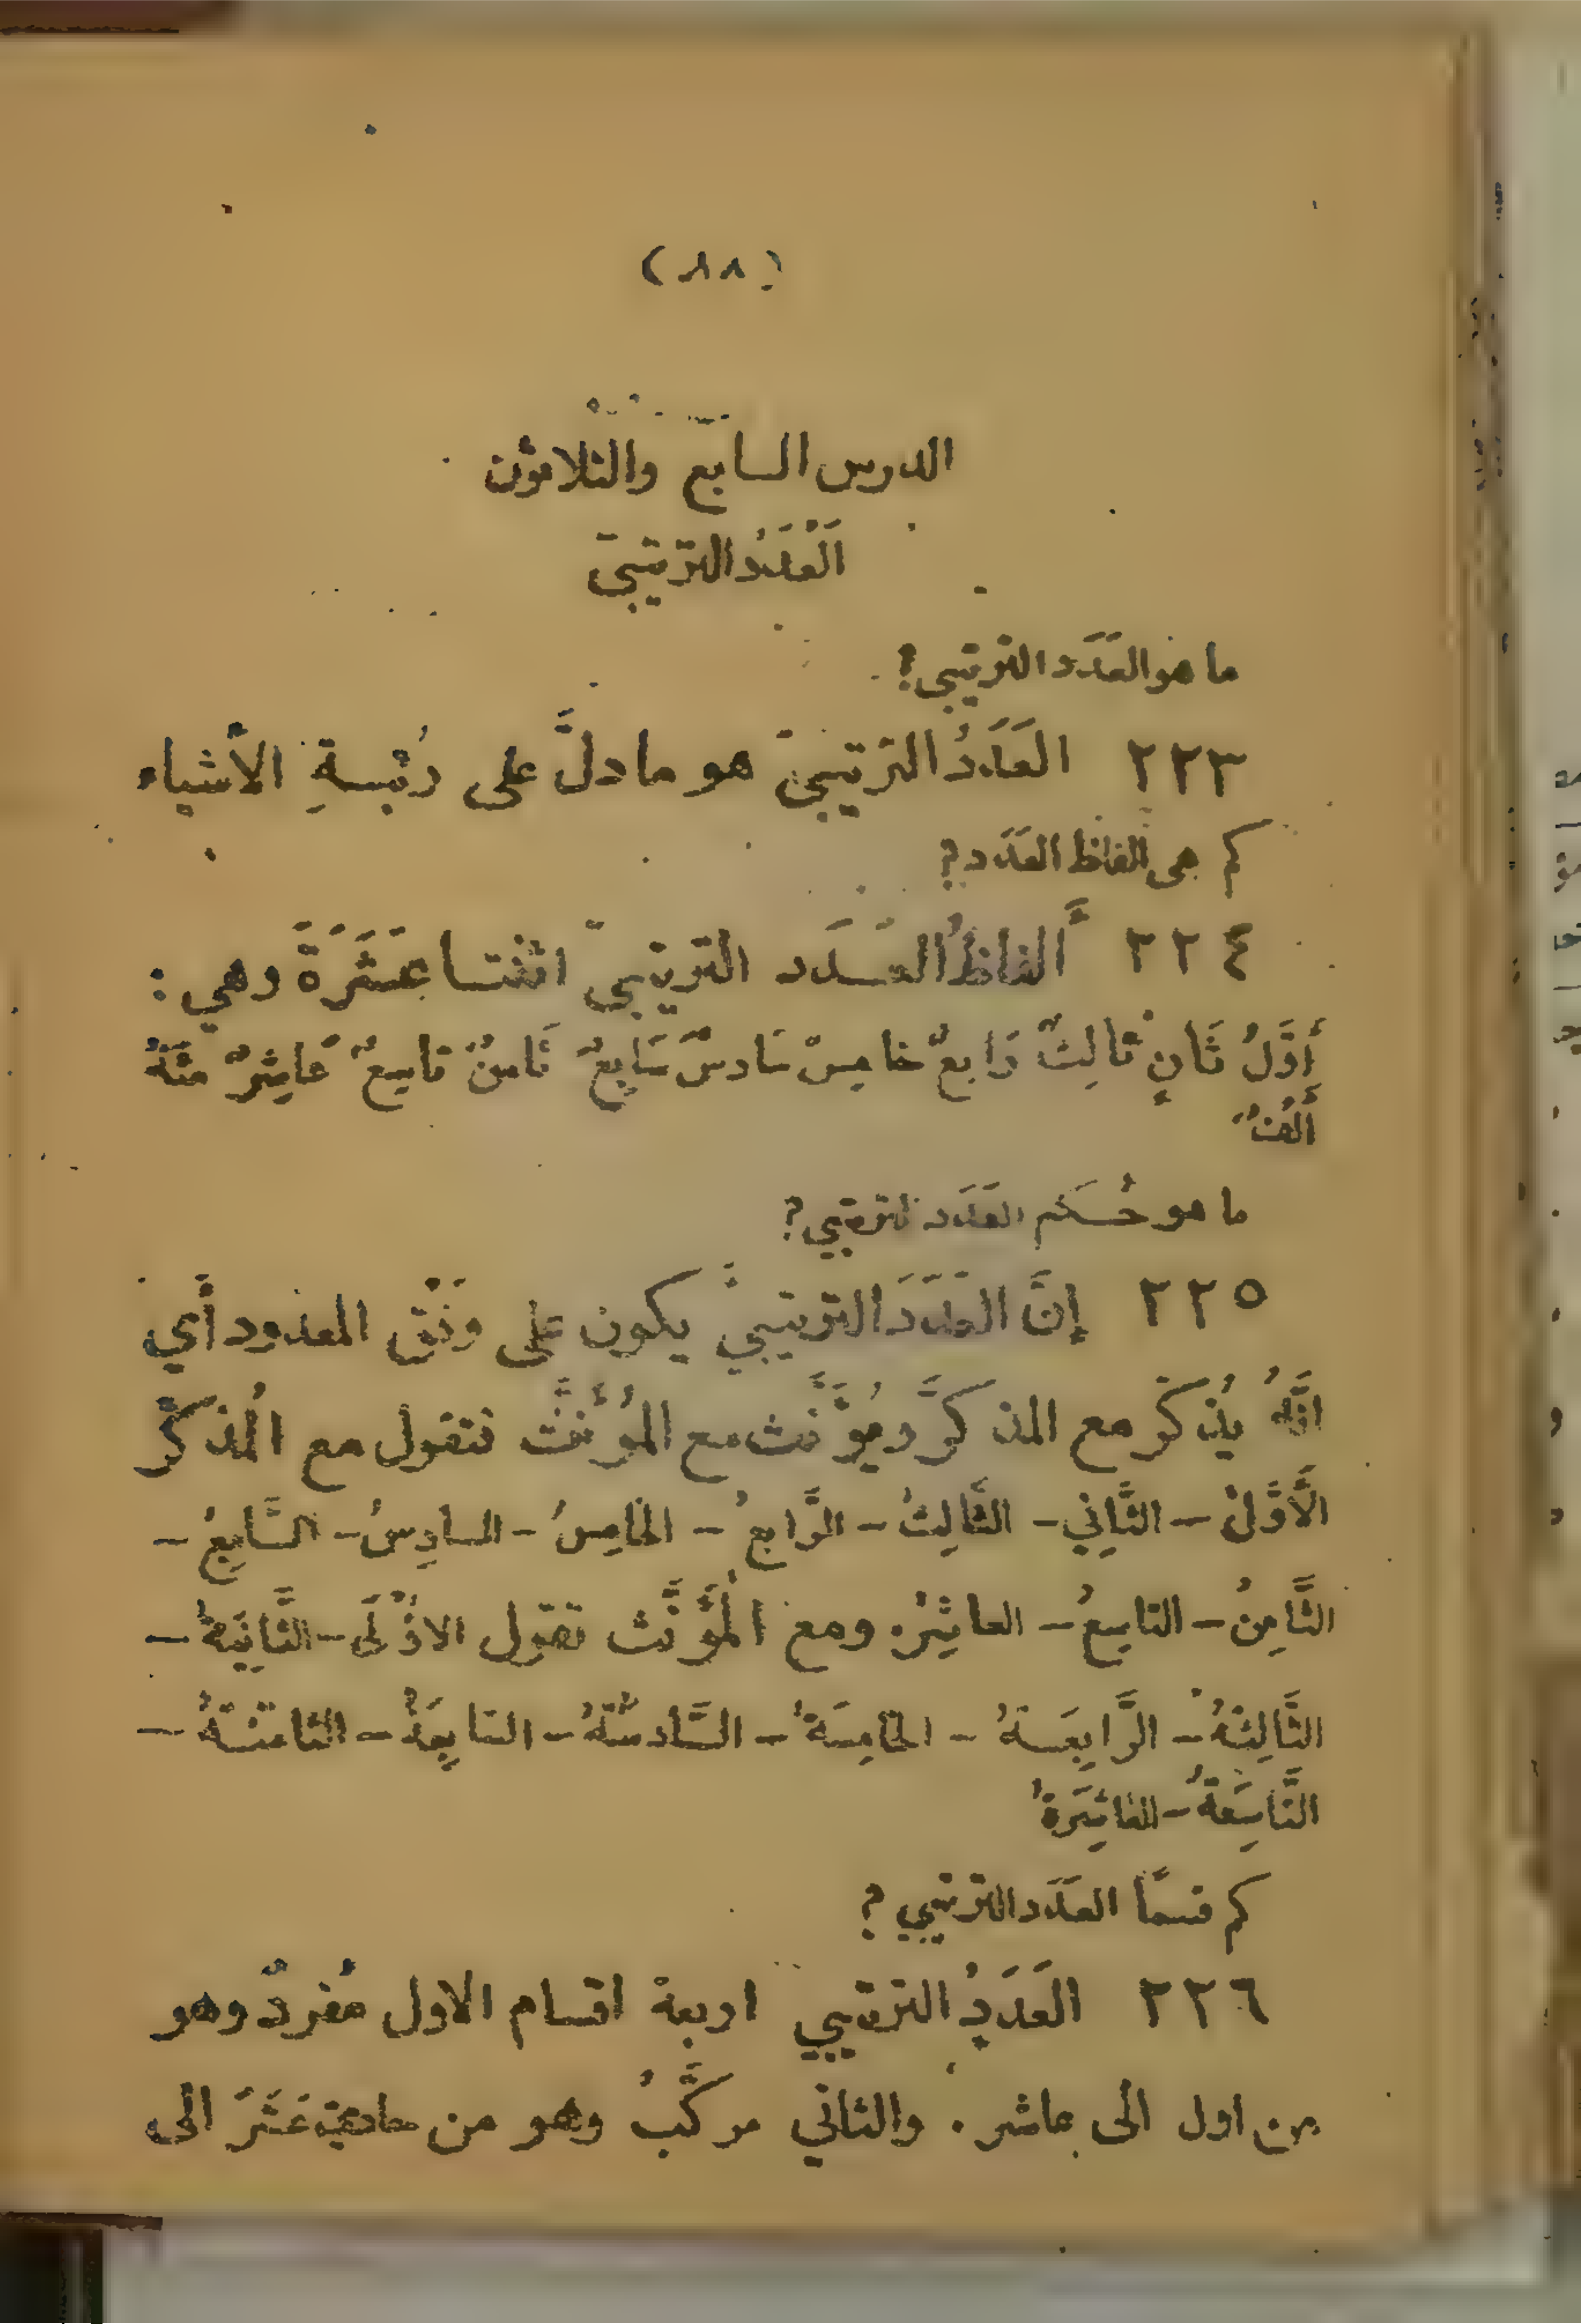 (٨٨)
الدرس السابع والثلاثون
اَلْعَدَدُ الترتيبيّ
ما هو العَدَد الترتيبي؟
٢٢٣ العَدَدُ الترتيبيّ هو ما دلَّ على رُتبةِ الأشياء
كم هي الفاظ العَدَد؟
٢٢٤ أَلفاظُ العَدَد الترتيبيّ اثنتا عَشَرَةَ وهي :
أَوَّلُ ثَانٍ ثالِثٌ رَابعٌ خامِسٌ سَادسٌ سَابِعٌ ثَامنٌ تاسِعٌ عَاشِرٌ مئَةٌ
أَلفٌ
ما هو حُكم العَدَد الترتيبي؟
٢٢٥ إِنَّ العَدَدَ الترتيبيَّ يكون على وَفْق المعدود أَي
انَّهُ يُذكَّر مع المذكَّر ويُؤَنَّث مع المُؤَنَّث فتقول مع المُذكَّر
الأَوَّلُ – الثَّاني – الثَّالِثُ – الرَّابعُ – الخامِسُ – السادِسُ – السَّابِعُ –
الثَّامِنُ – التاسِعُ – العاشِرُ. ومع المُؤَنَّث تقول الاوْلَى – الثَّانِيَةُ –
الثَّالِثَةُ – الرَّابِعَةُ – الخامِسَةُ – السَّادسَةُ – السَابِعَةُ – الثامنَةُ –
التَّاسِعَةُ – العَاشِرَةُ
كم قسمًا العَدَد الترتيبي ؟
٢٢٦ العَدَدُ الترتيبي اربعة اقسام الاول مُفردٌ وهو
من اول الى عاشر . والثاني مركَّبٌ وهو من حادي عَشَرَ الى